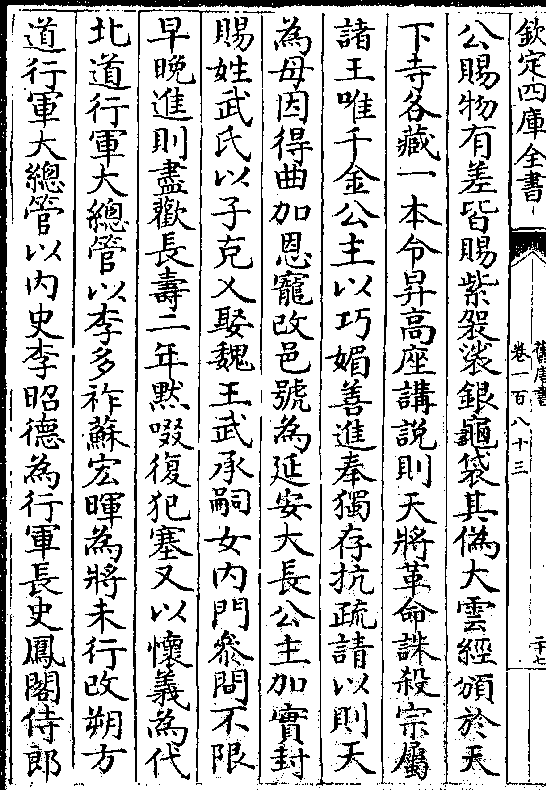 欽定四庫全書
舊唐書
卷一百八十三
二十七
公賜物有差皆賜紫袈裟銀龜袋其偽大雲經頒於天
下寺各藏一本令昇高座講說則天將革命誅殺宗屬
諸王唯千金公主以巧媚善進奉獨存抗疏請以則天
為母因得曲加恩寵改邑號為延安大長公主加實封
賜姓武氏以子克乂娶魏王武承嗣女內門叅問不限
早晚進則盡歡長壽二年默啜復犯塞又以懷義為代
北道行軍大總管以李多祚蘇宏暉為將未行改朔方
道行軍大總管以內史李昭德為行軍長史鳳閣侍郎